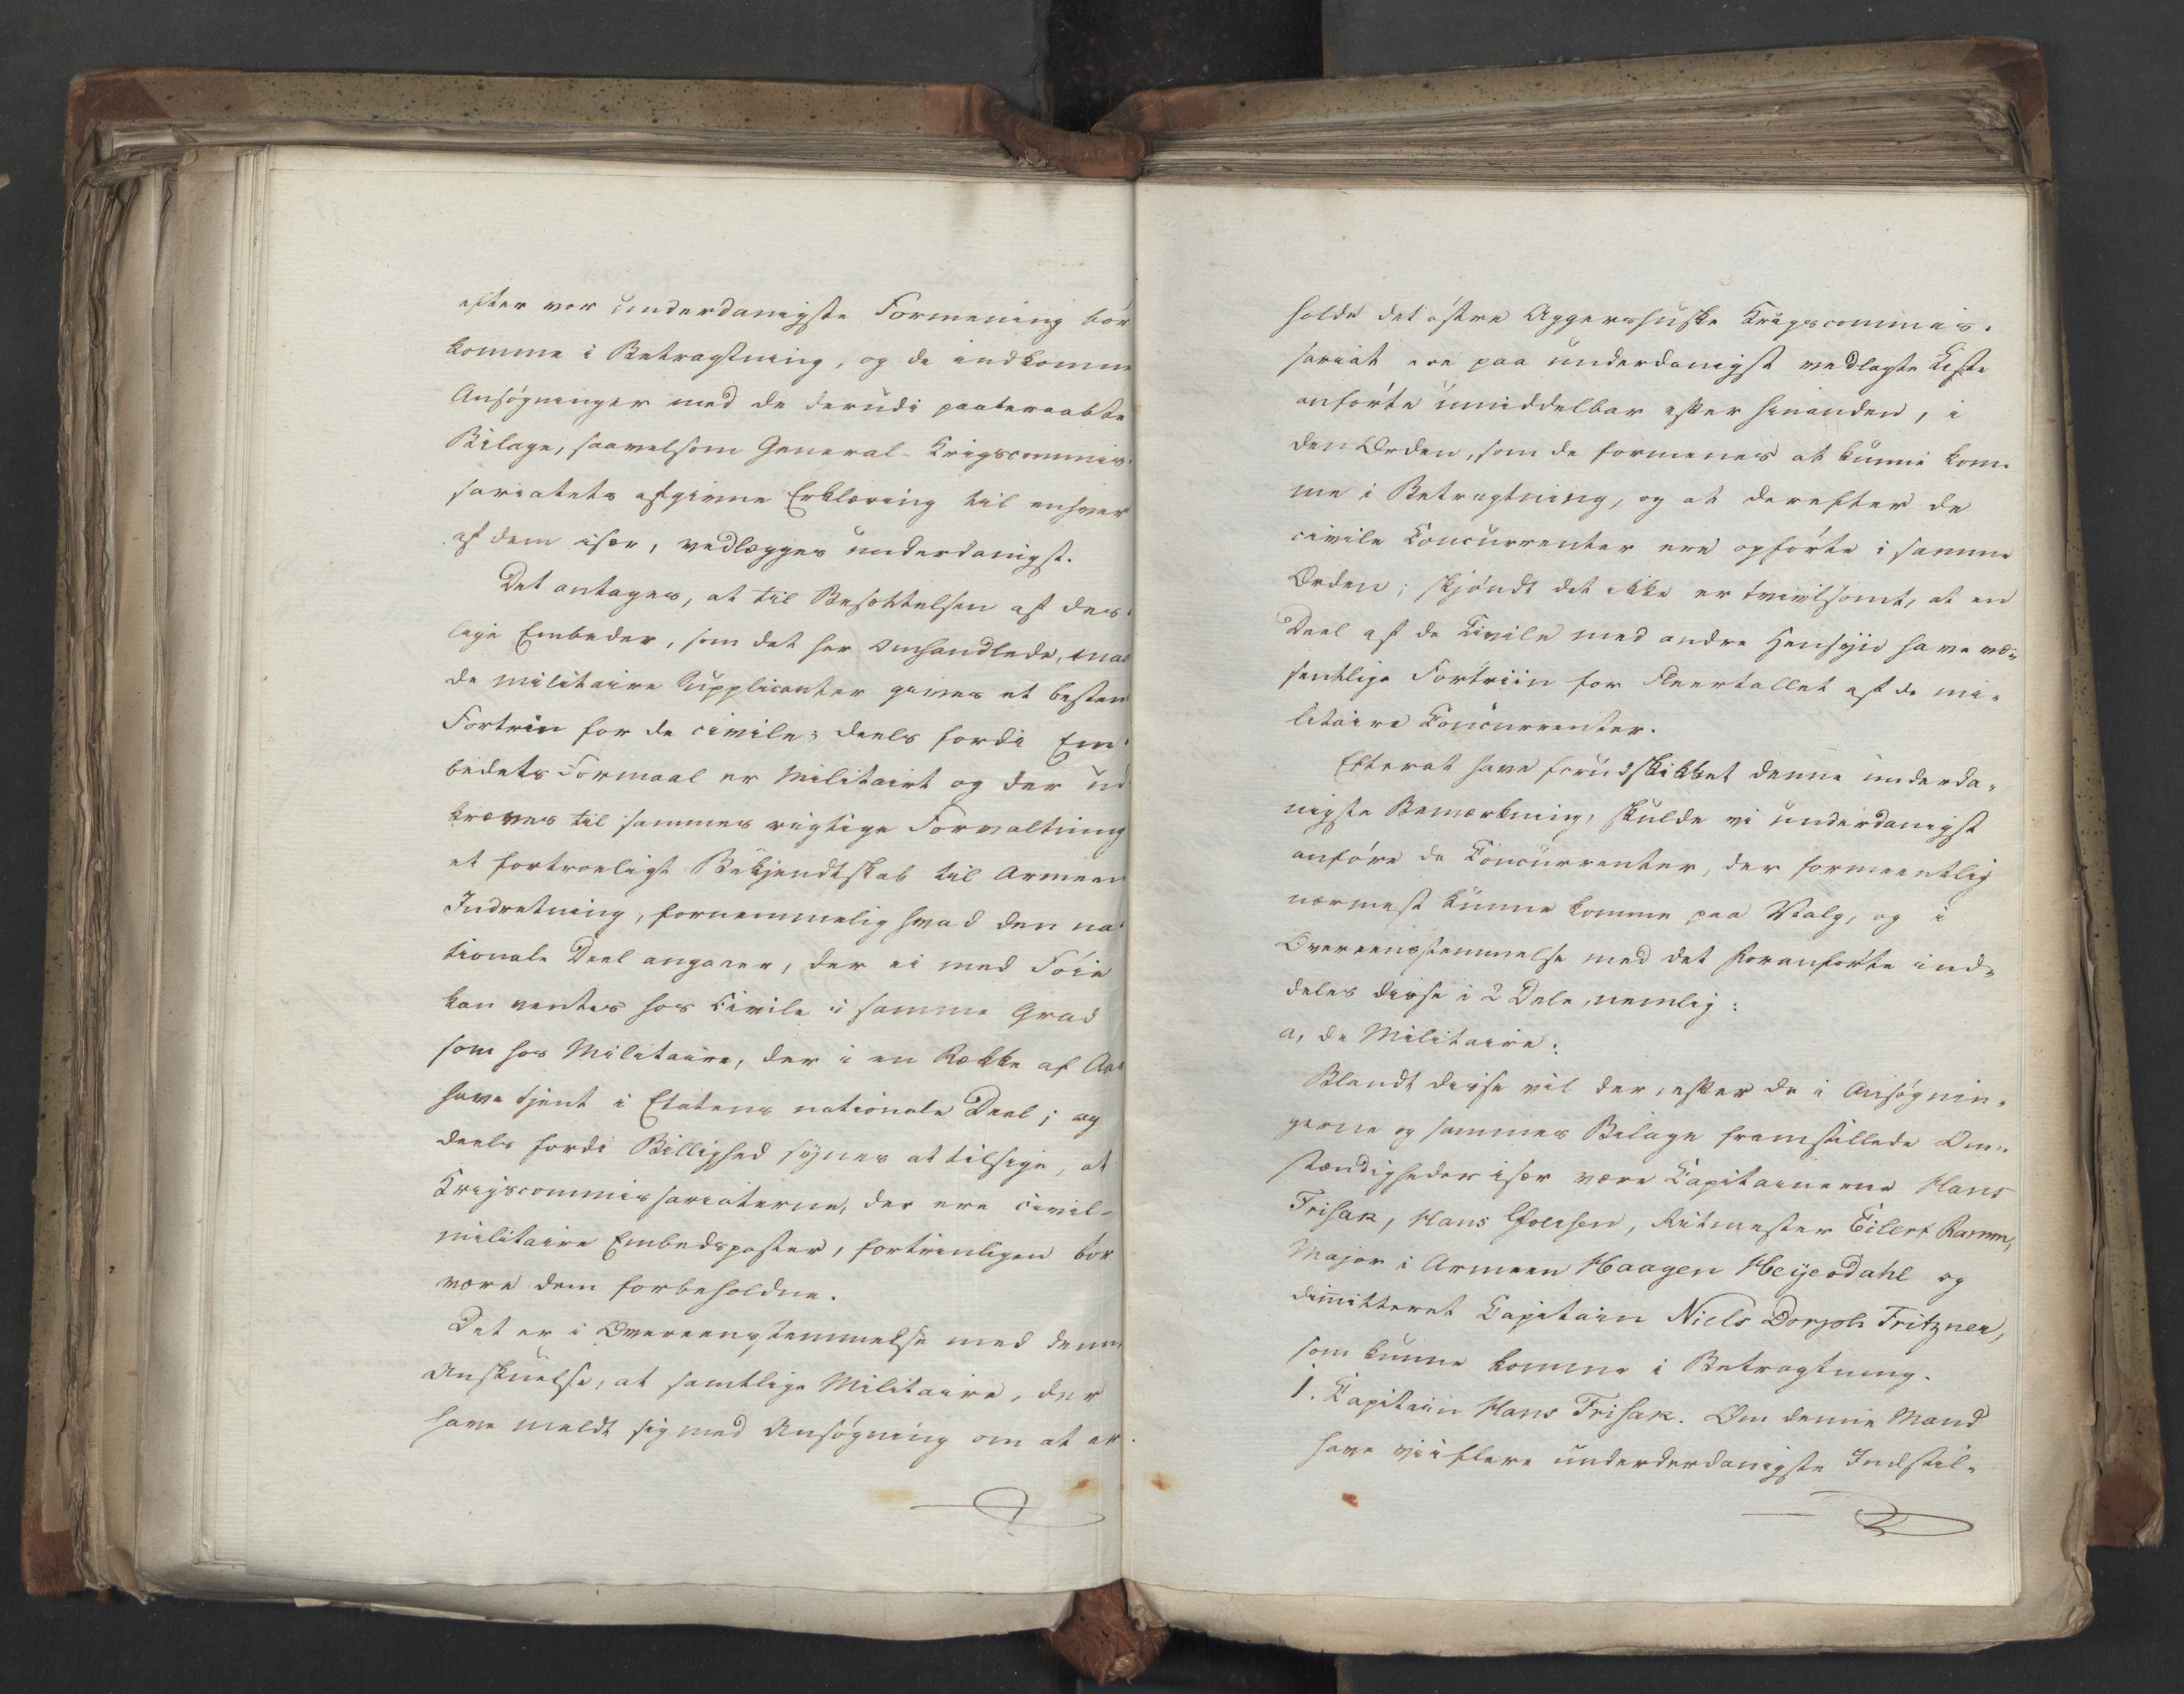 efter vor underdanigste Formening bør
komme i Betragtning, og de indkomne
Ansøgninger med de derudi paaberaabte
Bilage, saavelsom General-Krigscommis-
sariatets afgivne Erklæring til enhver
af dem især, vedlægges underdanigst.
Det antages, at til Besættelsen af des-
lige Embeder, som det her omhandlede, maa
de militaire Supplicanter gives et bestemt
Fortrin for de civile; deels fordi Em-
bedets Formaal er Militairt og der ud
kræves til sammes rigtige Forvaltning
et fortroeligt Bekjendtskab til Armeens
Indretning, fornemmelig hvad den na-
tionale Deel angaaer, der ei med Føie
kan ventes hos Civile i samme Grad
som hos Militaire, der i en Række af Aar
have tjent i Etatens nationale Deel; og
deels fordi Billighed synes at tilsige, at
Krigscommissariaterne, der ere civil-
militaire Embedsposter, fortrinligen bør
være dem forbeholdne.
Det er i Overeensstemmelse med denne
Anskuelse, at samtlige Militaire, der
have meldt sig med Ansøgning om at er-
holde det østre Aggershuske Krigscommis-
sariat ere paa underdanigst vedlagte Liste
anførte umiddelbar efter hinanden, i
den Orden, som de formenes at kunne kom-
me i Betragtning, og at derefter de
civile Concurrenter ere opførte i samme
Orden; skjøndt det ikke er tvivlsomt, at en
Deel af de Civile med andre Hensyn have væ-
sentlige Fortriin for Fleertallet af de mi-
litaire Concurrenter.
Efterat have forudskikket denne underda-
nigste Bemærkning, skulde vi underdanigst
anføre de Concurrenter, der formeentlig
nærmest kunne komme paa Valg, og i
Overeensstemmelse med det foranførte ind-
deles disse i 2 Dele, nemlig:
a, de Militaire:
Blandt disse vil der, efter de i Ansøgnin-
gerne og sammes Bilage fremstillede Om-
stændigheder især være Capitainerne Hans
Frisak, Hans Ræmm,
Major i Armeen Haagen Heyerdahl og
dimitteret Capitain Niels Dorph Fritzner,
som kunne komme i Betragtning.
1. Capitain Hans Frisak. Om denne Mand
have vi i flere underderdanigste Indstil-